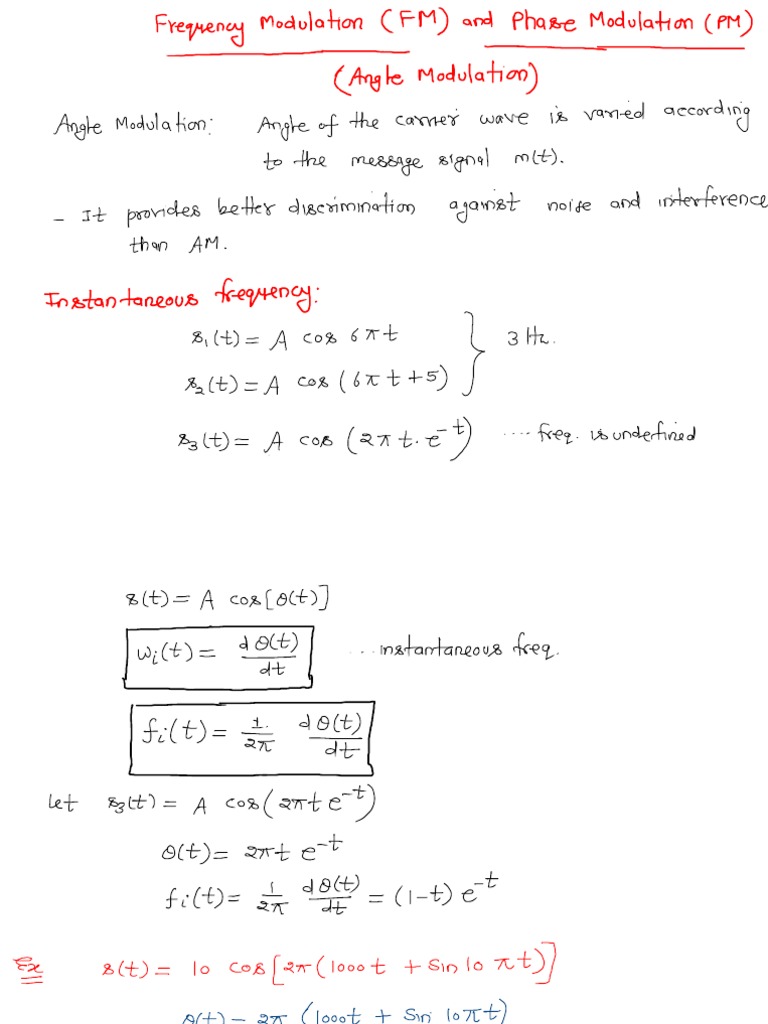 Frequency Modulation (FM) and Phase Modulation (PM)
(Angle Modulation)
Angle Modulation: Angle of the carrier wave is varied according
to the message signal m(t).
- It provides better discrimination against noise and interference
than AM.
Instantaneous frequency:
s₁(t) = A cos 6πt
s₂(t) = A cos (6πt+5) } 3 Hz.
s₃(t) = A cos (2πt.e^-t) .... freq. is undefined
s(t) = A cos[θ(t)]
ωᵢ(t) = dθ(t)/dt ... instantaneous freq.
fᵢ(t) = 1/2π dθ(t)/dt
Let s₃(t) = A cos(2πt e^-t)
θ(t) = 2πt e^-t
fᵢ(t) = 1/2π dθ(t)/dt = (1-t) e^-t
Ex s(t) = 10 cos[2π(1000t + sin 10πt)]
θ(t) = 2π (1000t + sin 10πt)